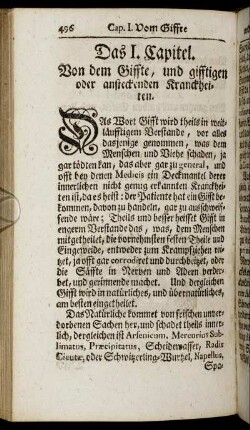 496 Cap. I. Vom Giffte
Das I. Capitel.
Von dem Giffte, und gifftigen
oder ansteckenden Kranckhei-
ten.
DAs Wort Gifft wird theils in weit-
läufftigem Verstande, vor alles
dasjenige genommen, was dem
Menschen und Viehe schaden, ja
gar tödten kan, das aber gar zu general, und
offt bey denen Medicis ein Deckmantel derer
innerlichen nicht genug erkannten Kranckhei-
ten ist, da es heist: der Patiente hat ein Gifft be-
kommen, davon zu handeln, gar zu ausschwei-
fende wäre; Theils und besser heisset Gifft in
engerm Verstande das, was, dem Menschen
mitgetheilet, die vornehmsten festen Theile und
Eingeweide, entweder zum Krampff ziehen rei-
tzet, ja offt gar corrodiret und durchbeitzet, oder
die Säffte in Nerven und Adern verder-
bet, und gerinnende macht. Und dergleichen
Gifft wird in natürliches, und übernatürliches,
am besten eingetheilet.
Das Natürliche kommet von frischen unver-
dorbenen Sachen her, und schadet theils inner-
lich, dergleichen ist Arsenicum, Mercurius Sub-
limatus, Præcipitatus, Scheidewasser, Radix
Cicutæ, oder Schwitzerling-Wurtzel, Napellus,
Spa-